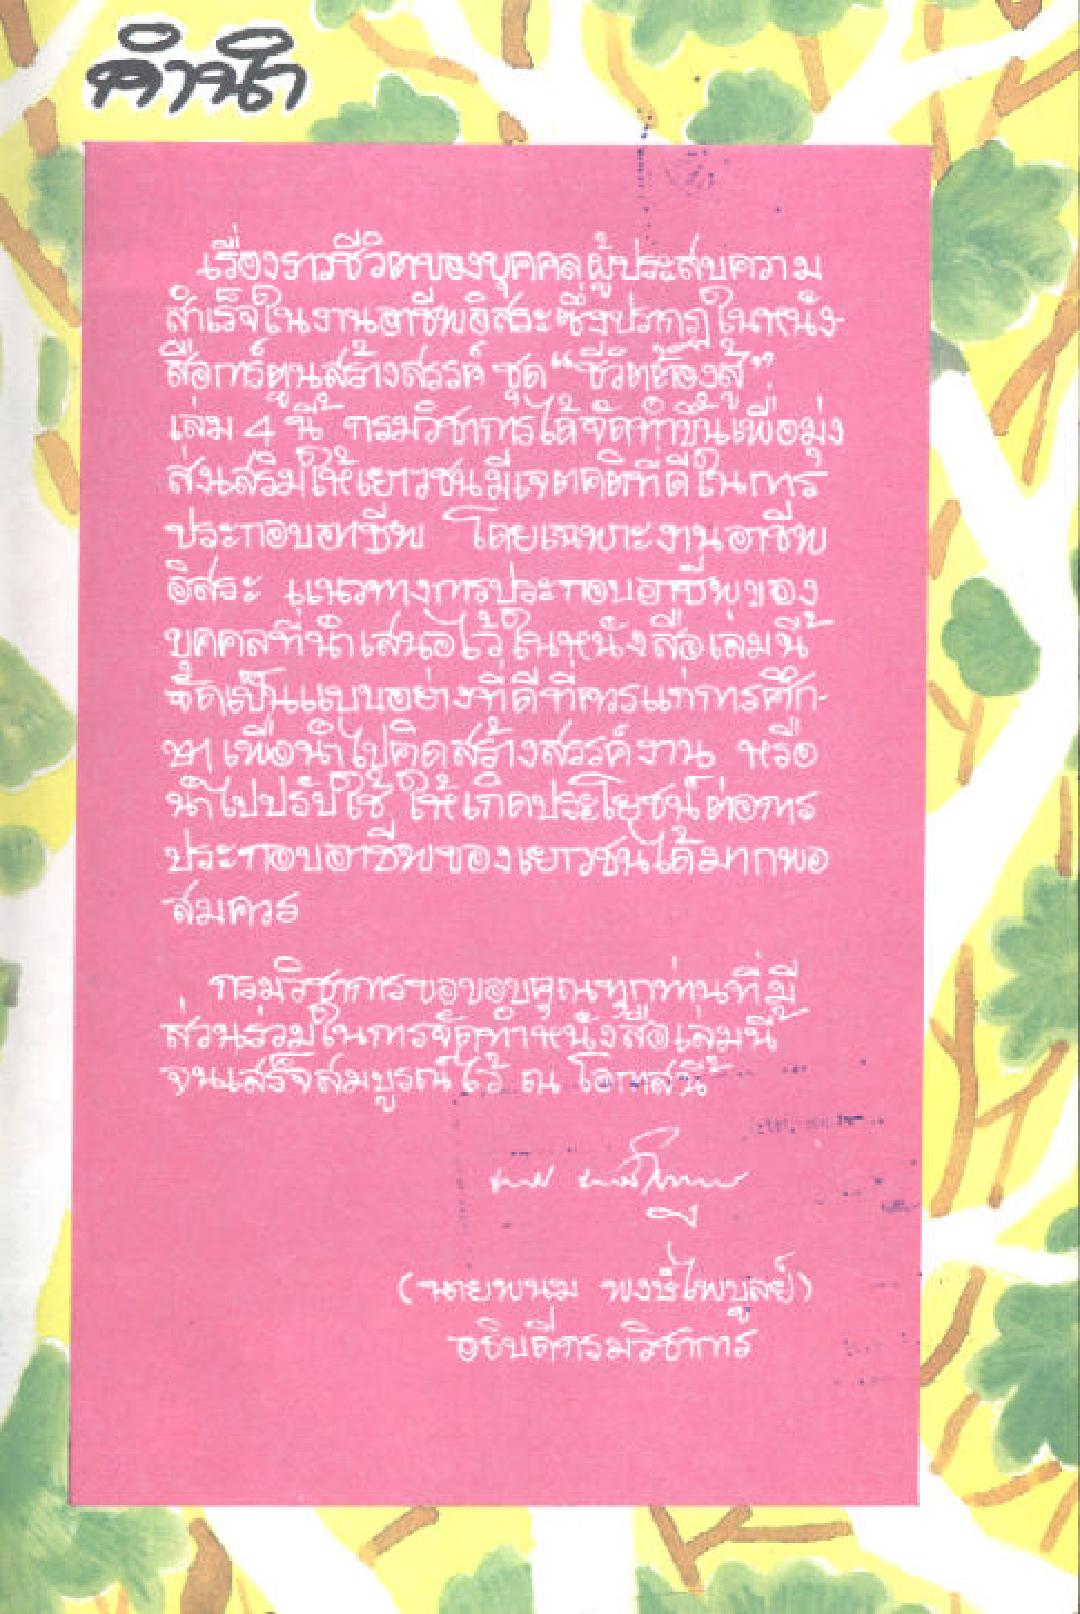 คำนำ
เรื่องราวชีวิตของบุคคลผู้ประสบความ
สำเร็จในงานอาชีพอิสระ ซึ่งปรากฏในหนัง-
สือการ์ตูนสร้างสรรค์ ชุด “ชีวิตต้องสู้”
เล่ม 4 นี้ กรมวิชาการได้จัดทำขึ้นเพื่อมุ่ง
ส่งเสริมให้เยาวชนมีเจตคติที่ดีในการ
ประกอบอาชีพ โดยเฉพาะงานอาชีพ
อิสระ แนวทางการประกอบอาชีพของ
บุคคลที่นำเสนอไว้ในหนังสือเล่มนี้
จัดเป็นแบบอย่างที่ดีที่ควรแก่การศึก-
ษา เพื่อนำไปคิดสร้างสรรค์งาน หรือ
นำไปปรับใช้ ให้เกิดประโยชน์ต่อการ
ประกอบอาชีพของเยาวชนได้มากพอ
สมควร
กรมวิชาการขอขอบคุณทุกท่านที่มี
ส่วนร่วมในการจัดทำหนังสือเล่มนี้
จนเสร็จสมบูรณ์ไว้ ณ โอกาสนี้
(นายพนม พงษ์ไพบูลย์)
อธิบดีกรมวิชาการ